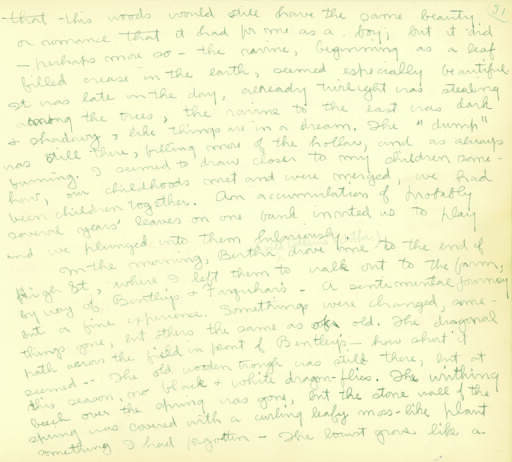 51
-that- this woods would still have the same beauty
or romance that it had for me as a boy, but it did
— perhaps more so — the ravine, beginning as a leaf
filled crease in the earth, seemed especially beautiful.
It was late in the day, already twilight was stealing
among the trees, the ravine to the east was dark
& shadowy, like things are in a dream. The "dump"
was still there, filling more of the hollow, and as always
burning. I seemed to draw closer to my children some-
how, our childhoods met and were merged, we had
been children together. An accumulation of probably
several years' leaves on one bank invited us to play
and we plunged into them hilariously.
In the morning, Bertha drove me to the end of
High St, where I left them to walk out to the farm,
by way of Bentleys & Farquhars - A sentimental journey
but a fine experience. Somethings were changed, some-
things gone, but others the same as of old. The diagonal
path across the field in front of Bentleys — how short it
seemed -- The old wooden trough was still there, but at
this season, no black & white dragon-flies. The writhing
beech over the spring was gone, but the stone wall of the
spring was covered with a curling leafy moss-like plant
something I had forgotten — The locust grove like a